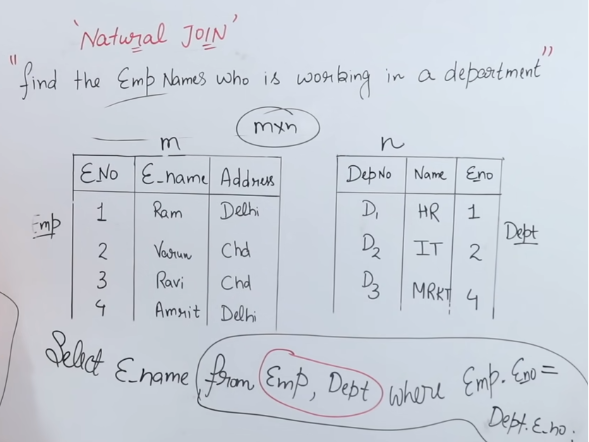 'Natural JOIN'
"find the Emp Names who is working in a department"
mxn
m
n
E.No E_name Address
1 Ram Delhi
2 Varun Chd
3 Ravi Chd
4 Amrit Delhi
Emp
DepNo Name Eno
D1 HR 1
D2 IT 2
D3 MRKT 4
Dept
Select E_name from Emp, Dept where Emp.Eno =
Dept.E_no.